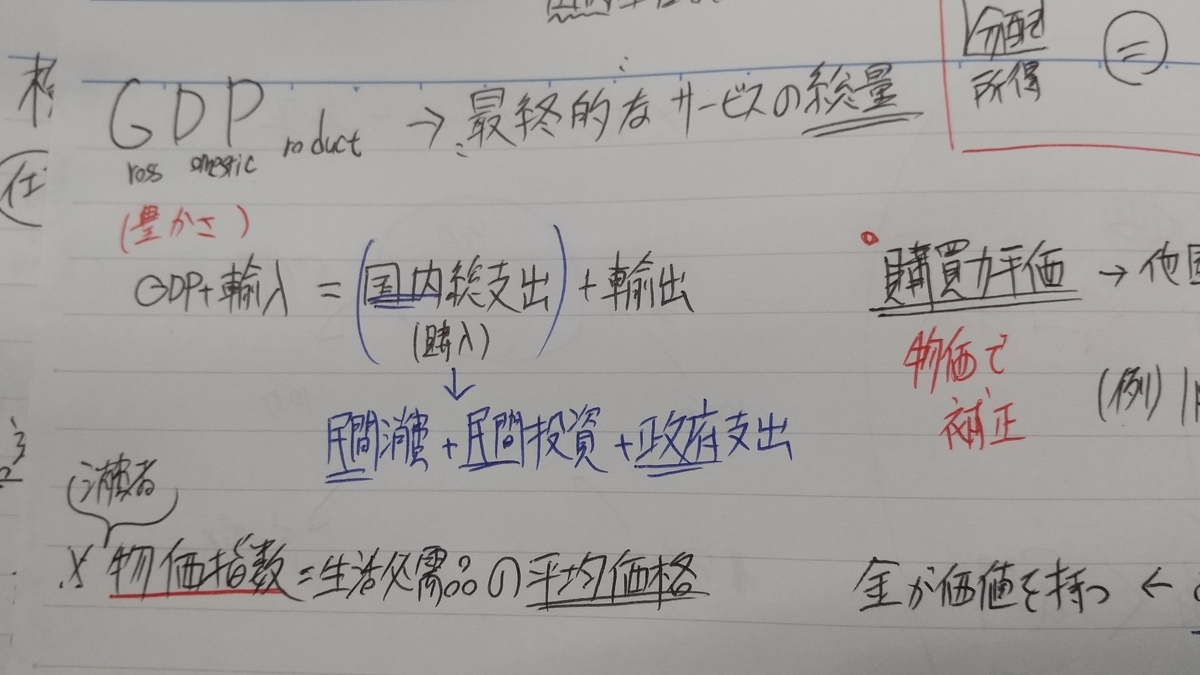 分配
=
所得
GDP → 最終的なサービスの総量
ross omestic roduct
(豊かさ)
GDP+輸入 = (国内総支出) + 輸出
(購入)
↓
民間消費 + 民間投資 + 政府支出
購買力平価 → 他国
物価で
補正
(例)
(消費者)
※ 物価指数 = 生活必需品の平均価格
金が価値を持つ ←